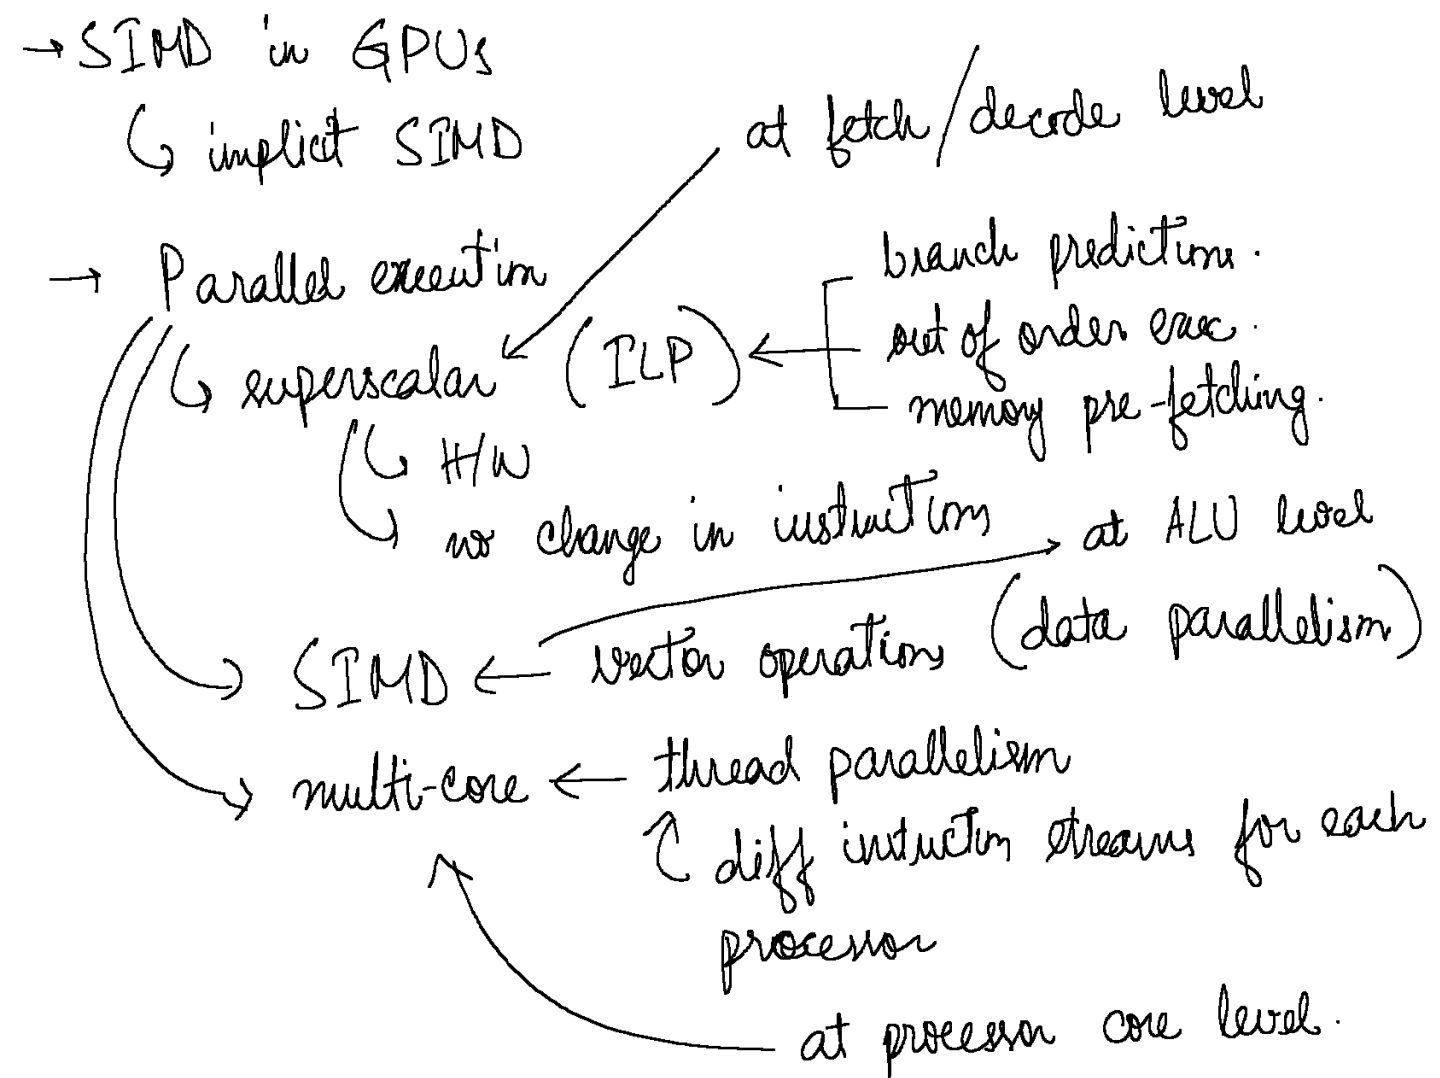 → SIMD in GPUs
↳ implicit SIMD
at fetch/decode level
→ Parallel execution
↳ superscalar (ILP) ←
branch predictions.
out of order exec.
memory pre-fetching.
↳ H/W
↳ no change in instructions
→ at ALU level
SIMD ← vector operations (data parallelism)
multi-core ← thread parallelism
diff instuction streams for each
processor
at processor core level.